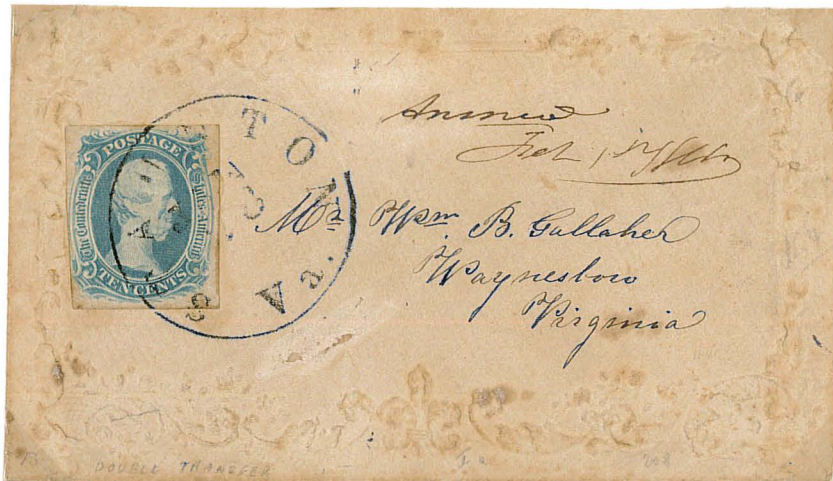 POSTAGE
The Confederate States of America
TEN CENTS
STAUNTON
Va.
Answered
Feb
Mr Wm. B. Gallaher
Waynesboro
Virginia
DOUBLE TRANSFER